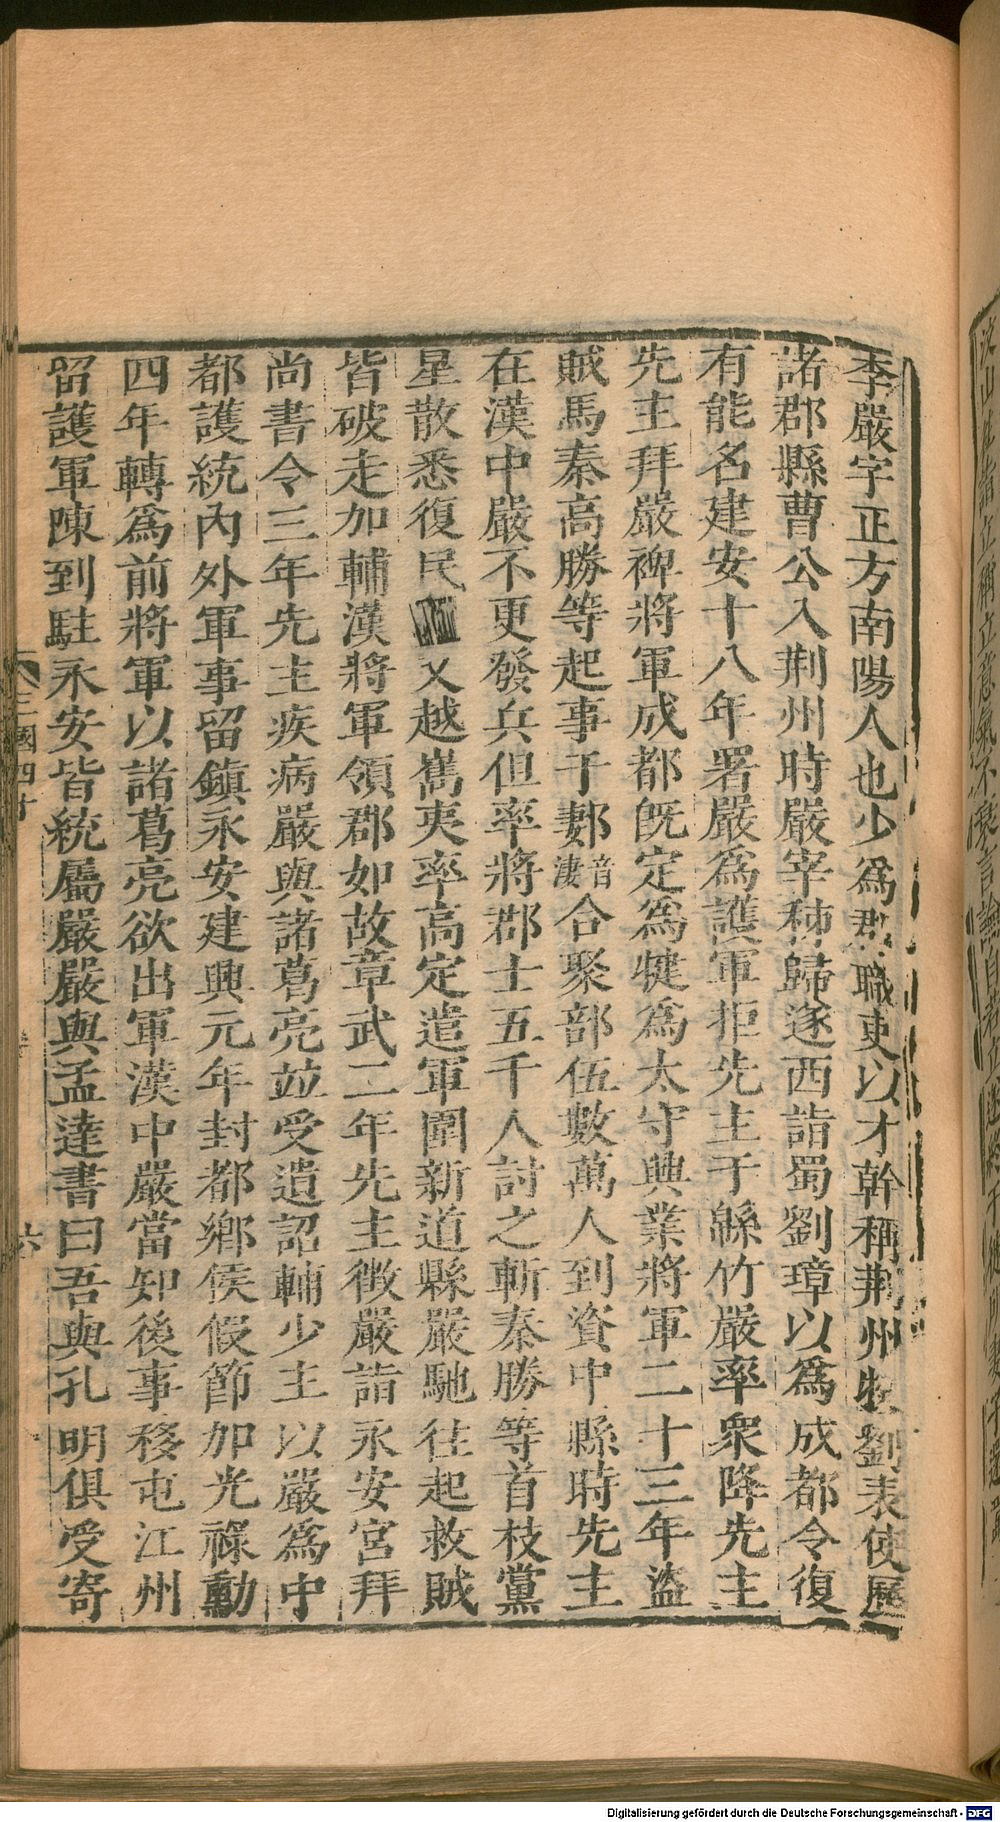 李嚴字正方南陽人也少爲郡職吏以才幹稱荆州牧劉表使歷
諸郡縣曹公入荆州時嚴宰秭歸遂西詣蜀劉璋以爲成都令復
有能名建安十八年署嚴爲護軍拒先主于緜竹嚴率衆降先主
先主拜嚴裨將軍成都旣定爲犍爲太守興業將軍二十三年盜
賊馬秦高勝等起事于郪音淒合聚部伍數萬人到資中縣時先主
在漢中嚴不更發兵但率將郡士五千人討之斬秦勝等首枝黨
星散悉復民又越嶲夷率高定遣軍圍新道縣嚴馳往赴救賊
皆破走加輔漢將軍領郡如故章武二年先主徵嚴詣永安宮拜
尚書令三年先主疾病嚴與諸葛亮竝受遺詔輔少主以嚴爲中
都護統內外軍事留鎭永安建興元年封都鄕侯假節加光祿勳
四年轉爲前將軍以諸葛亮欲出軍漢中嚴當知後事移屯江州
留護軍陳到駐永安皆統屬嚴嚴與孟達書曰吾與孔明俱受寄
三國四十
六
Digitalisierung gefördert durch die Deutsche Forschungsgemeinschaft - DFG